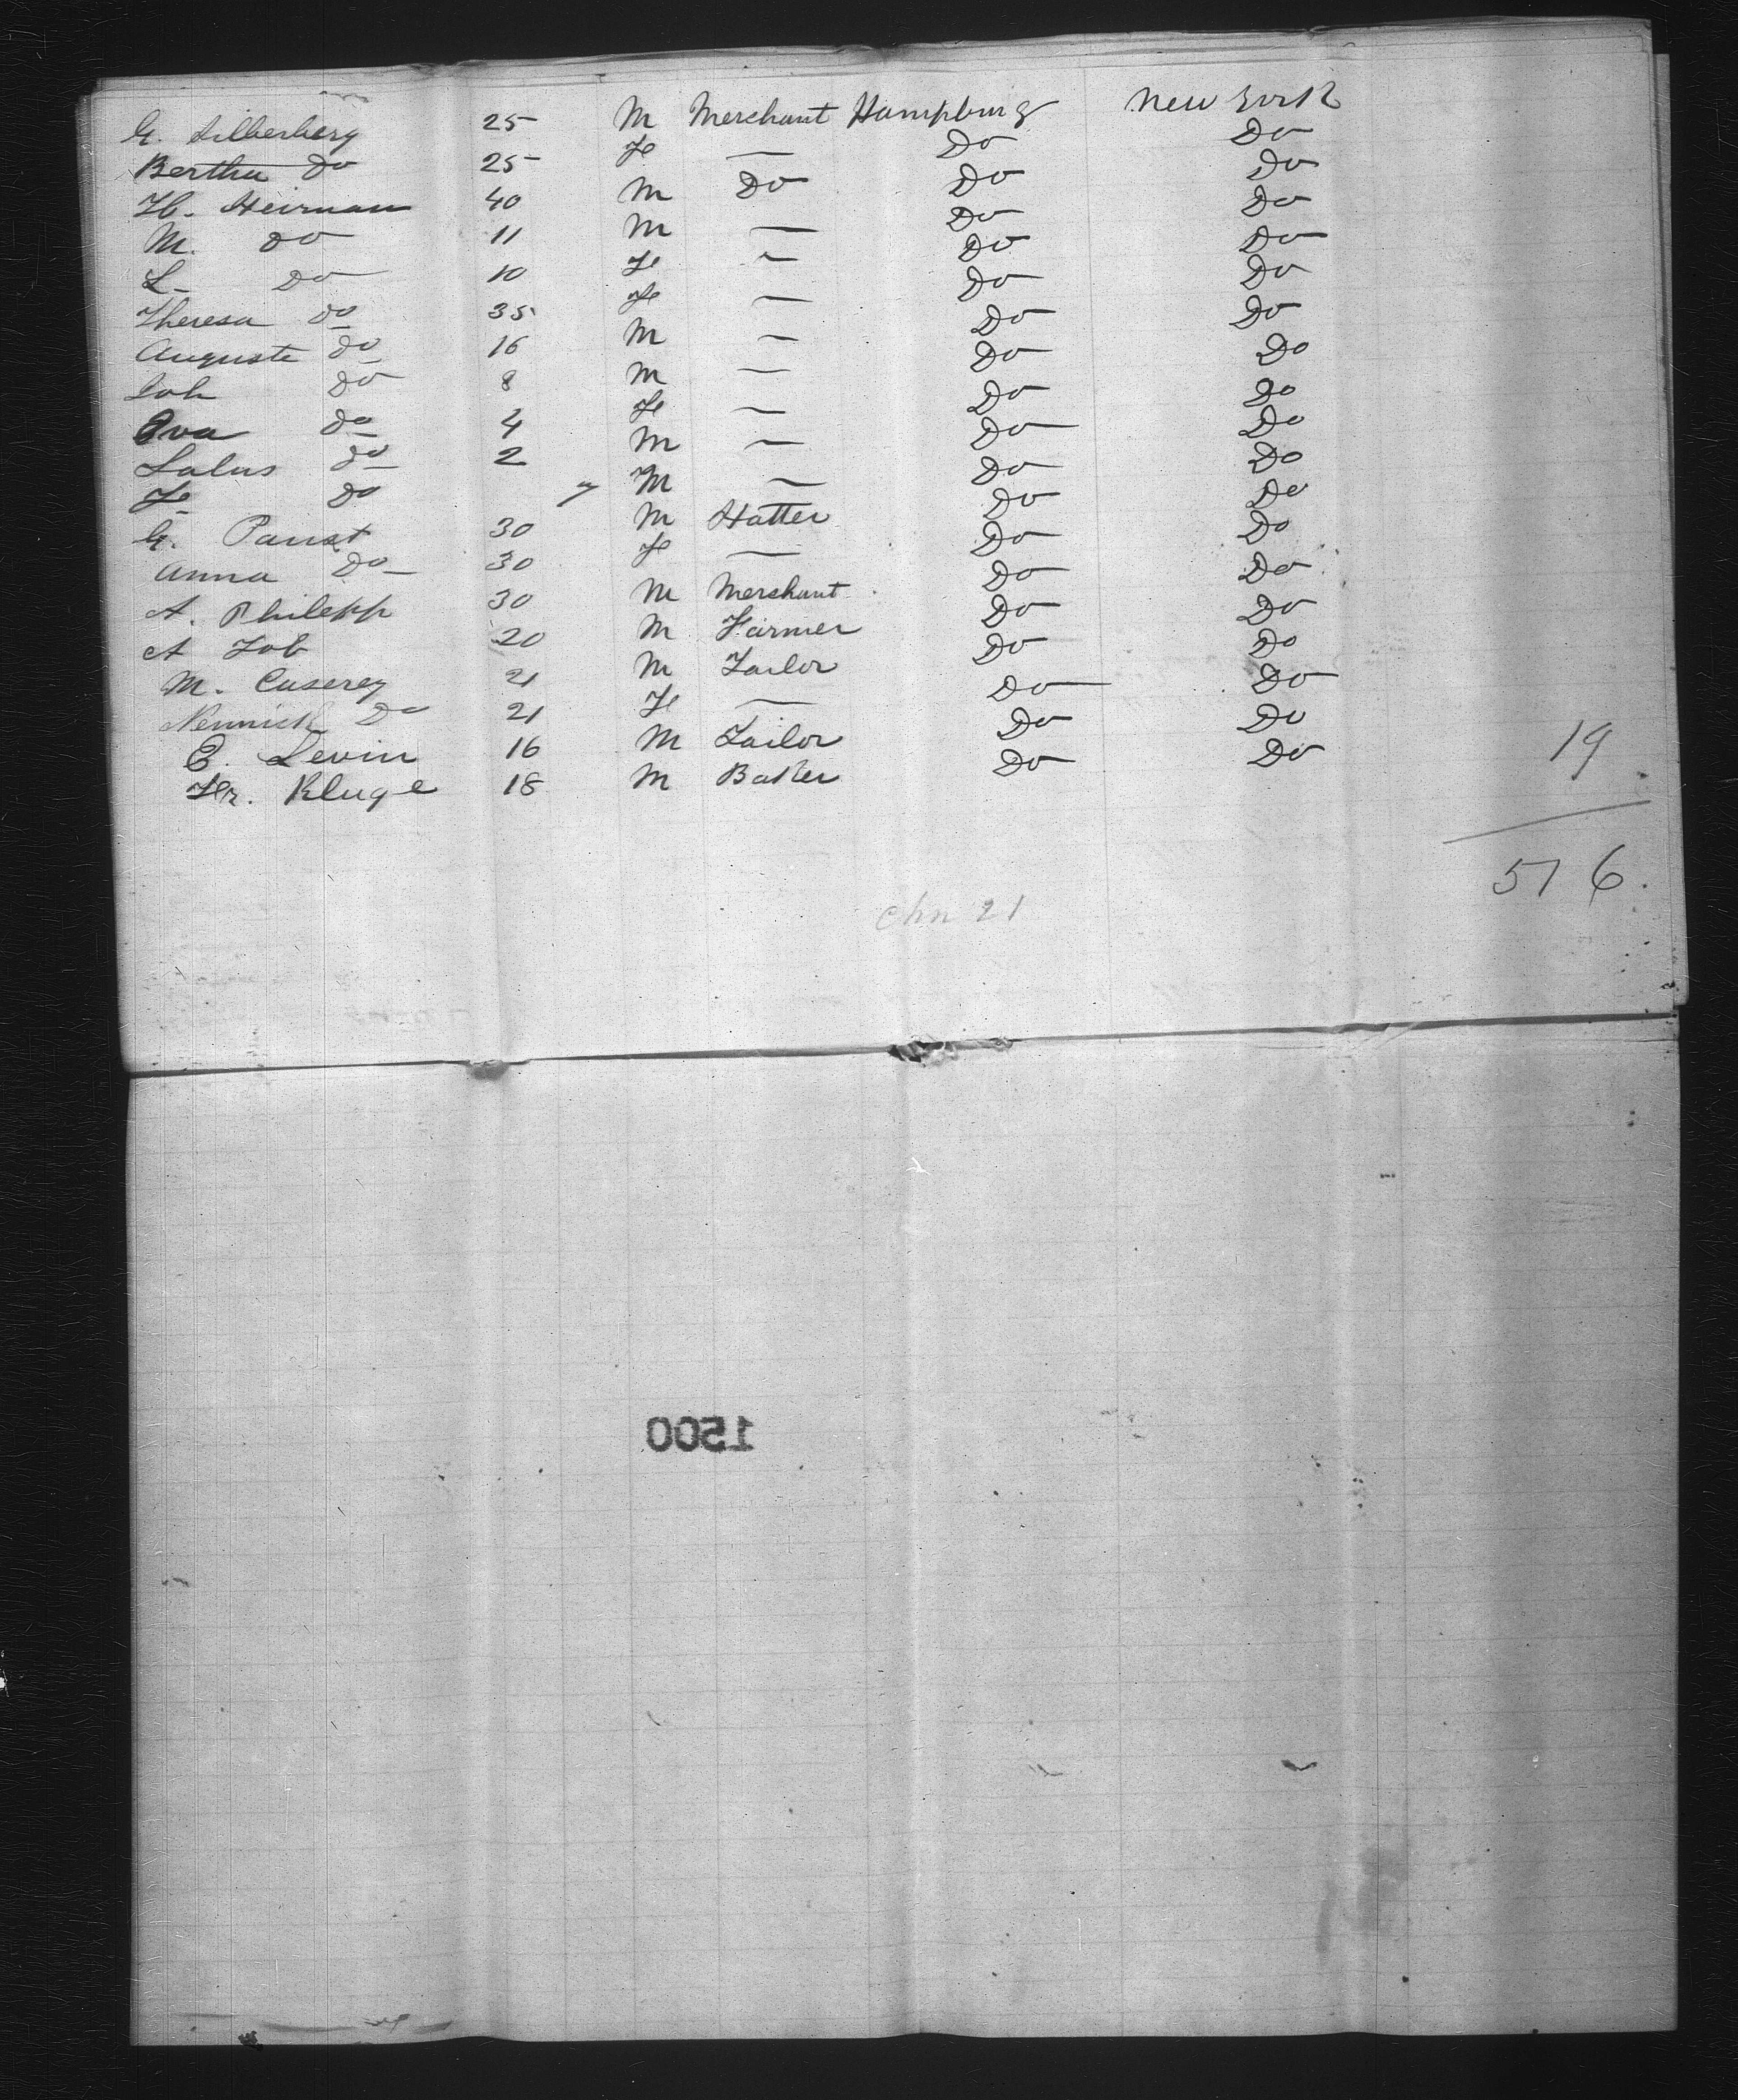 G. Silberberg 25 M Merchant Hampburg New York
Bertha do 25 Fe — Do Do
H. Heirman 40 M Do Do Do
M. do 11 M — Do Do
L. Do 10 Fe — Do Do
Theresa do 35 Fe — Do Do
Auguste do 16 M — Do Do
Joh do 8 M — Do Do
Eva do 4 Fe — Do Do
Salus do 2 M — Do Do
Fe do 7 M — Do Do
G. Panst 30 M Hatter Do Do
Anna Do 30 Fe — Do Do
A. Philepp 30 M Merchant Do Do
A Job 20 M Farmer Do Do
M. Caserey 21 M Tailor Do Do
Do 21 Fe — Do Do
E. Levin 16 M Tailor Do Do
Fr. Kluge 18 M Baker Do Do
19
576.
chn 21
1500